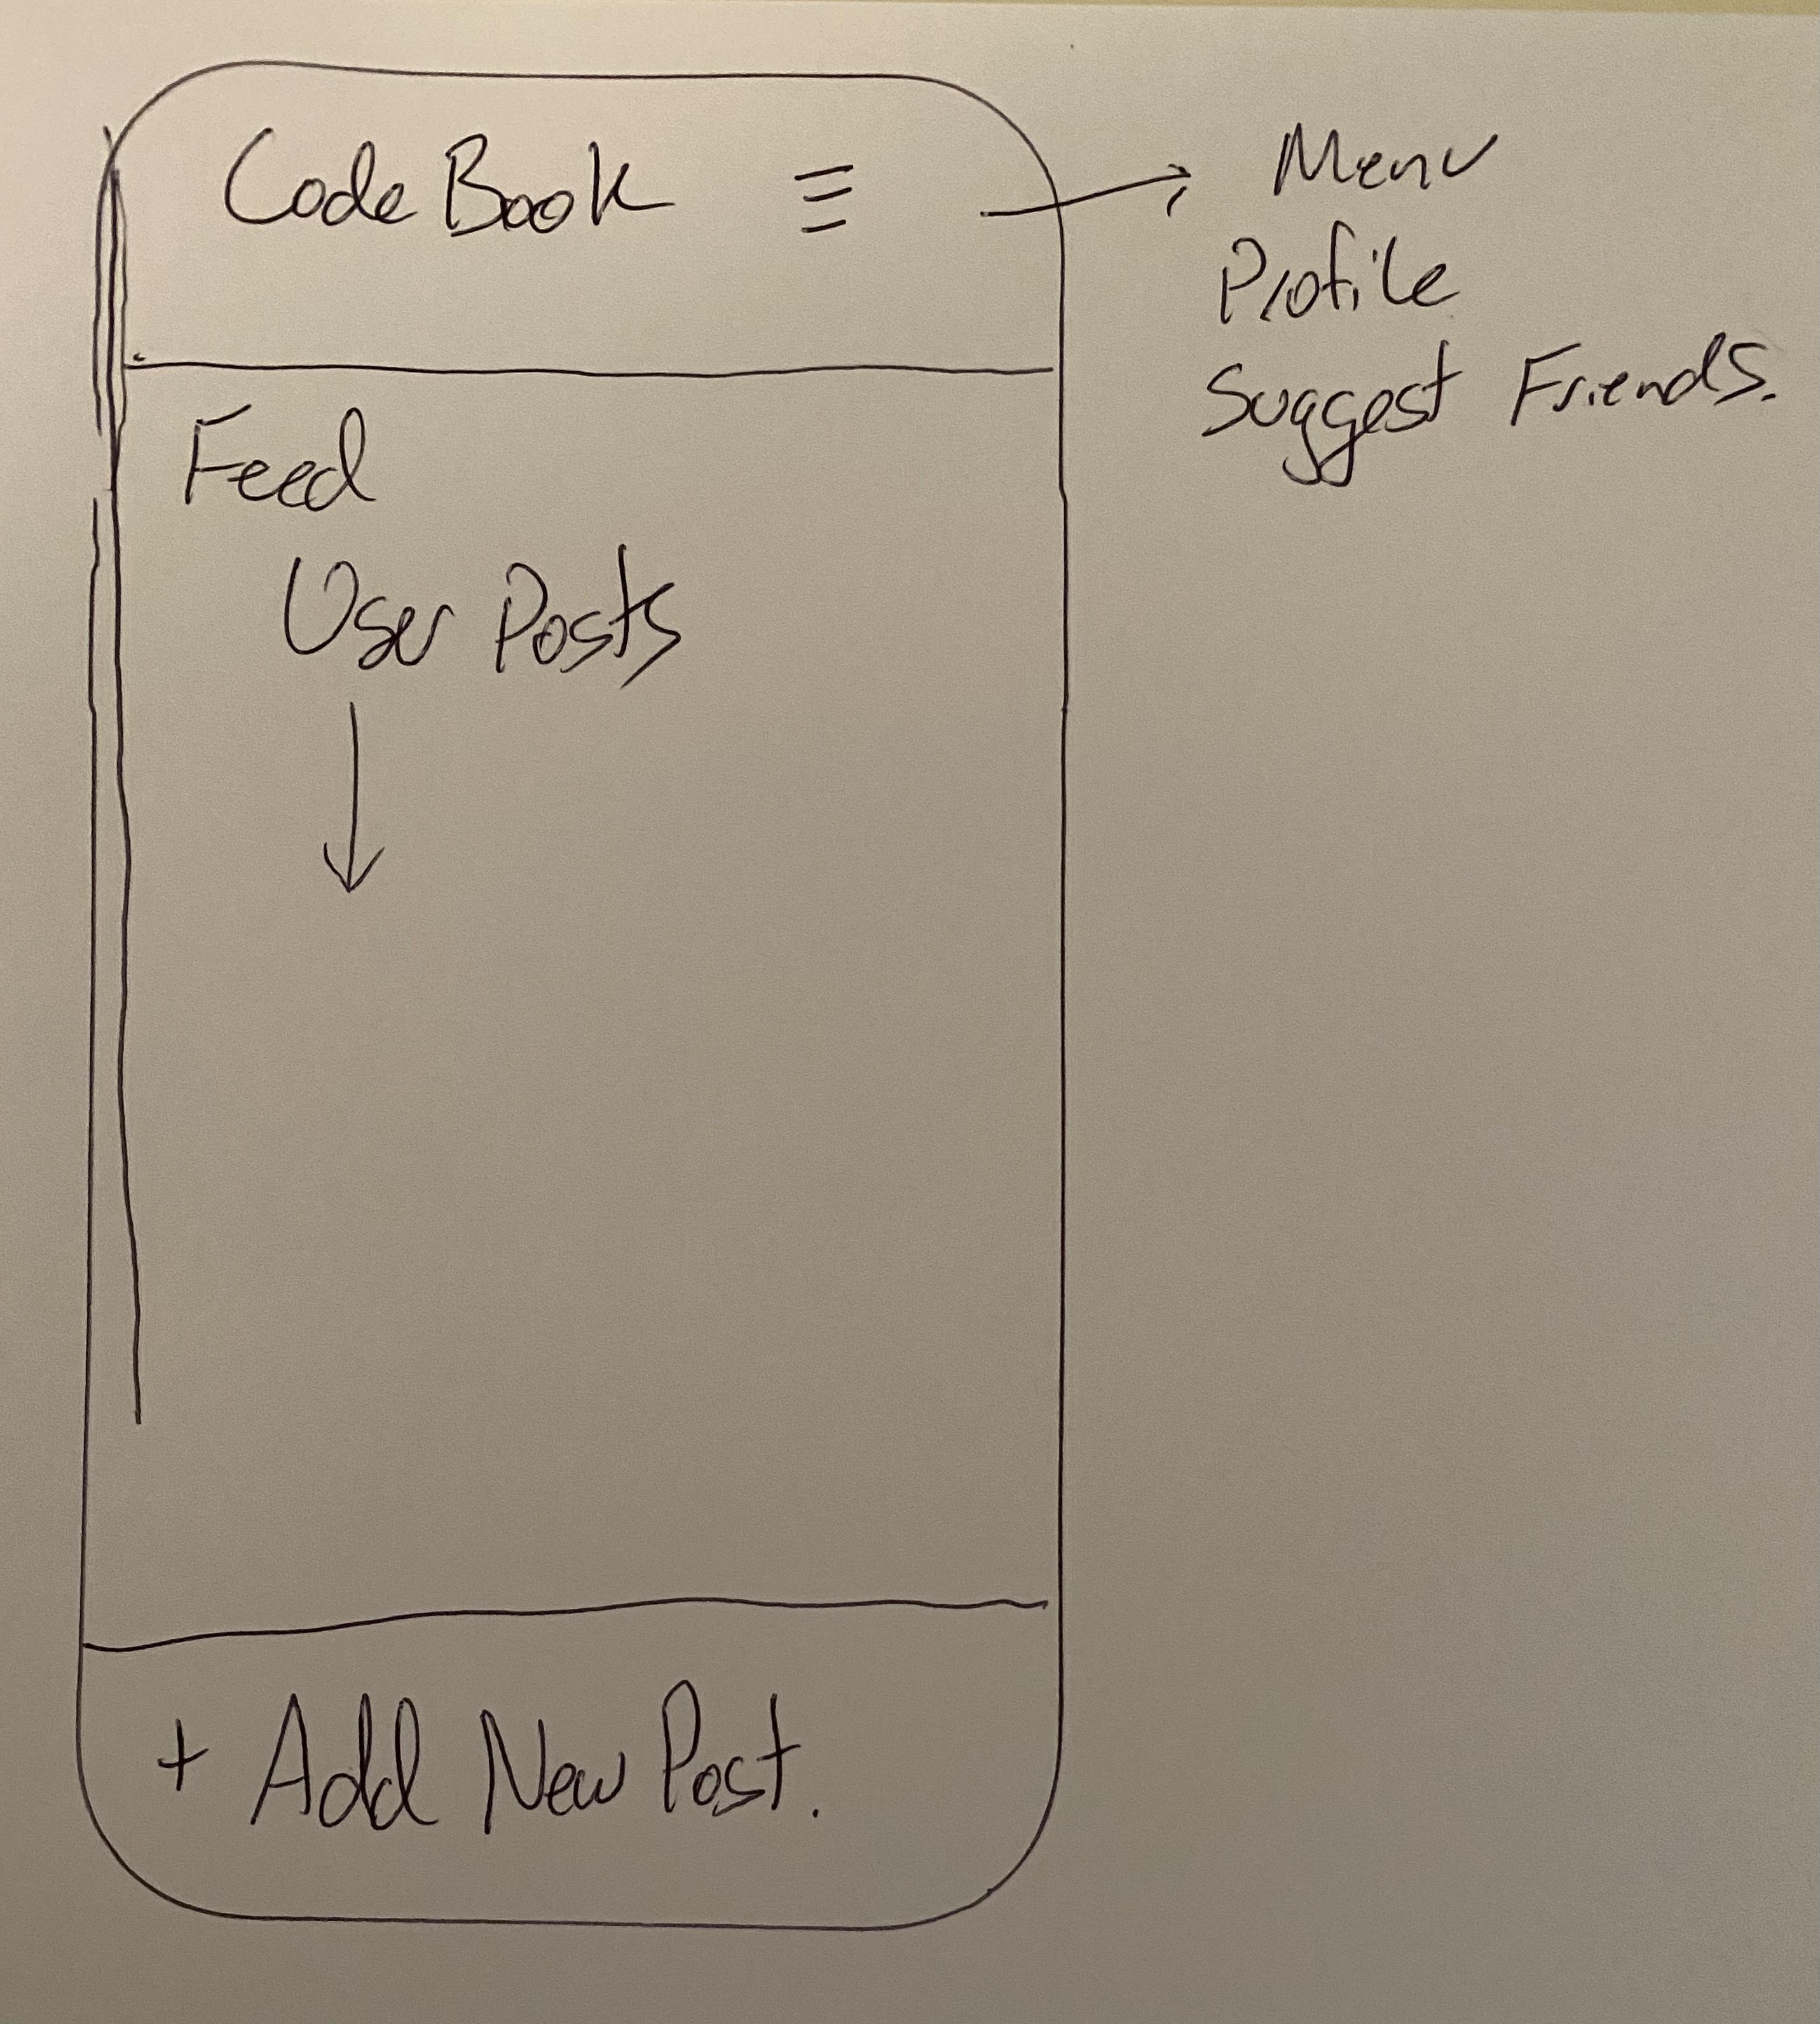 CodeBook
Menu
Profile
Suggest Friends.
Feed
User Posts
+ Add New Post.